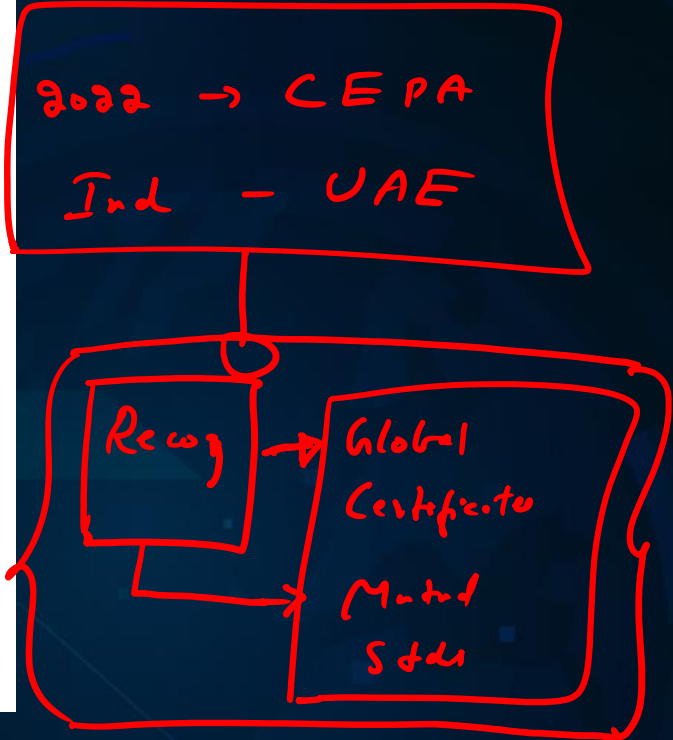 2022 → CEPA
Ind - UAE
Recog
Global
Certificates
Mutual
Stds